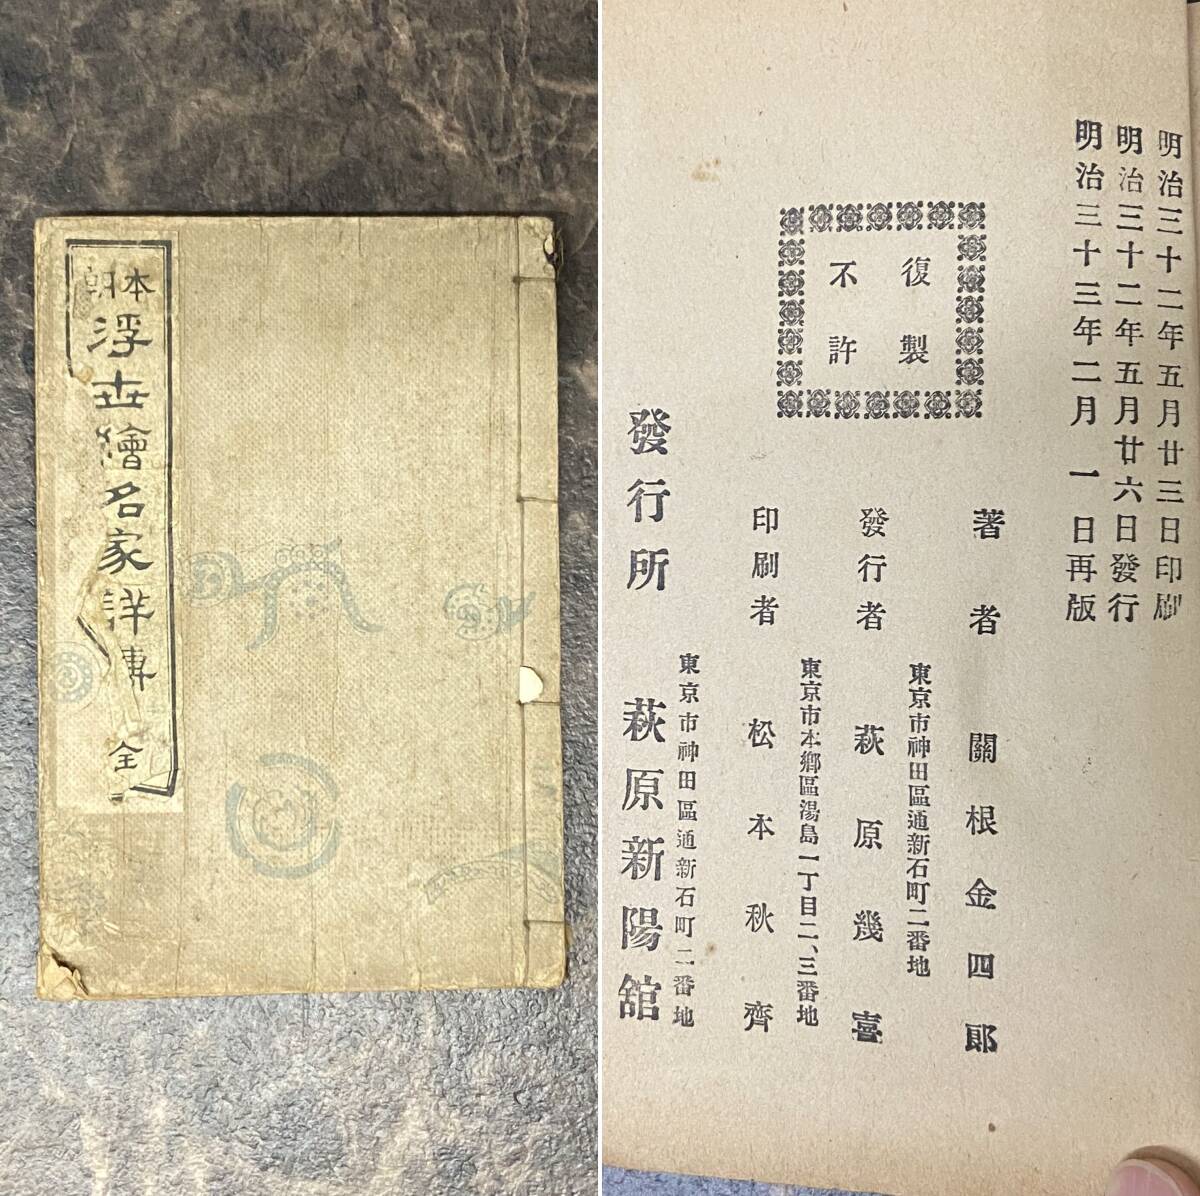 本朝
浮世繪名家詳傳
全
明治三十二年五月廿三日印刷
明治三十二年五月廿六日發行
明治三十三年二月一日再版
復製
不許
著者 關根金四郎
東京市神田區通新石町二番地
發行者 萩原幾喜
東京市本鄉區湯島一丁目二、三番地
印刷者 松本秋齊
東京市神田區通新石町二番地
發行所 萩原新陽舘